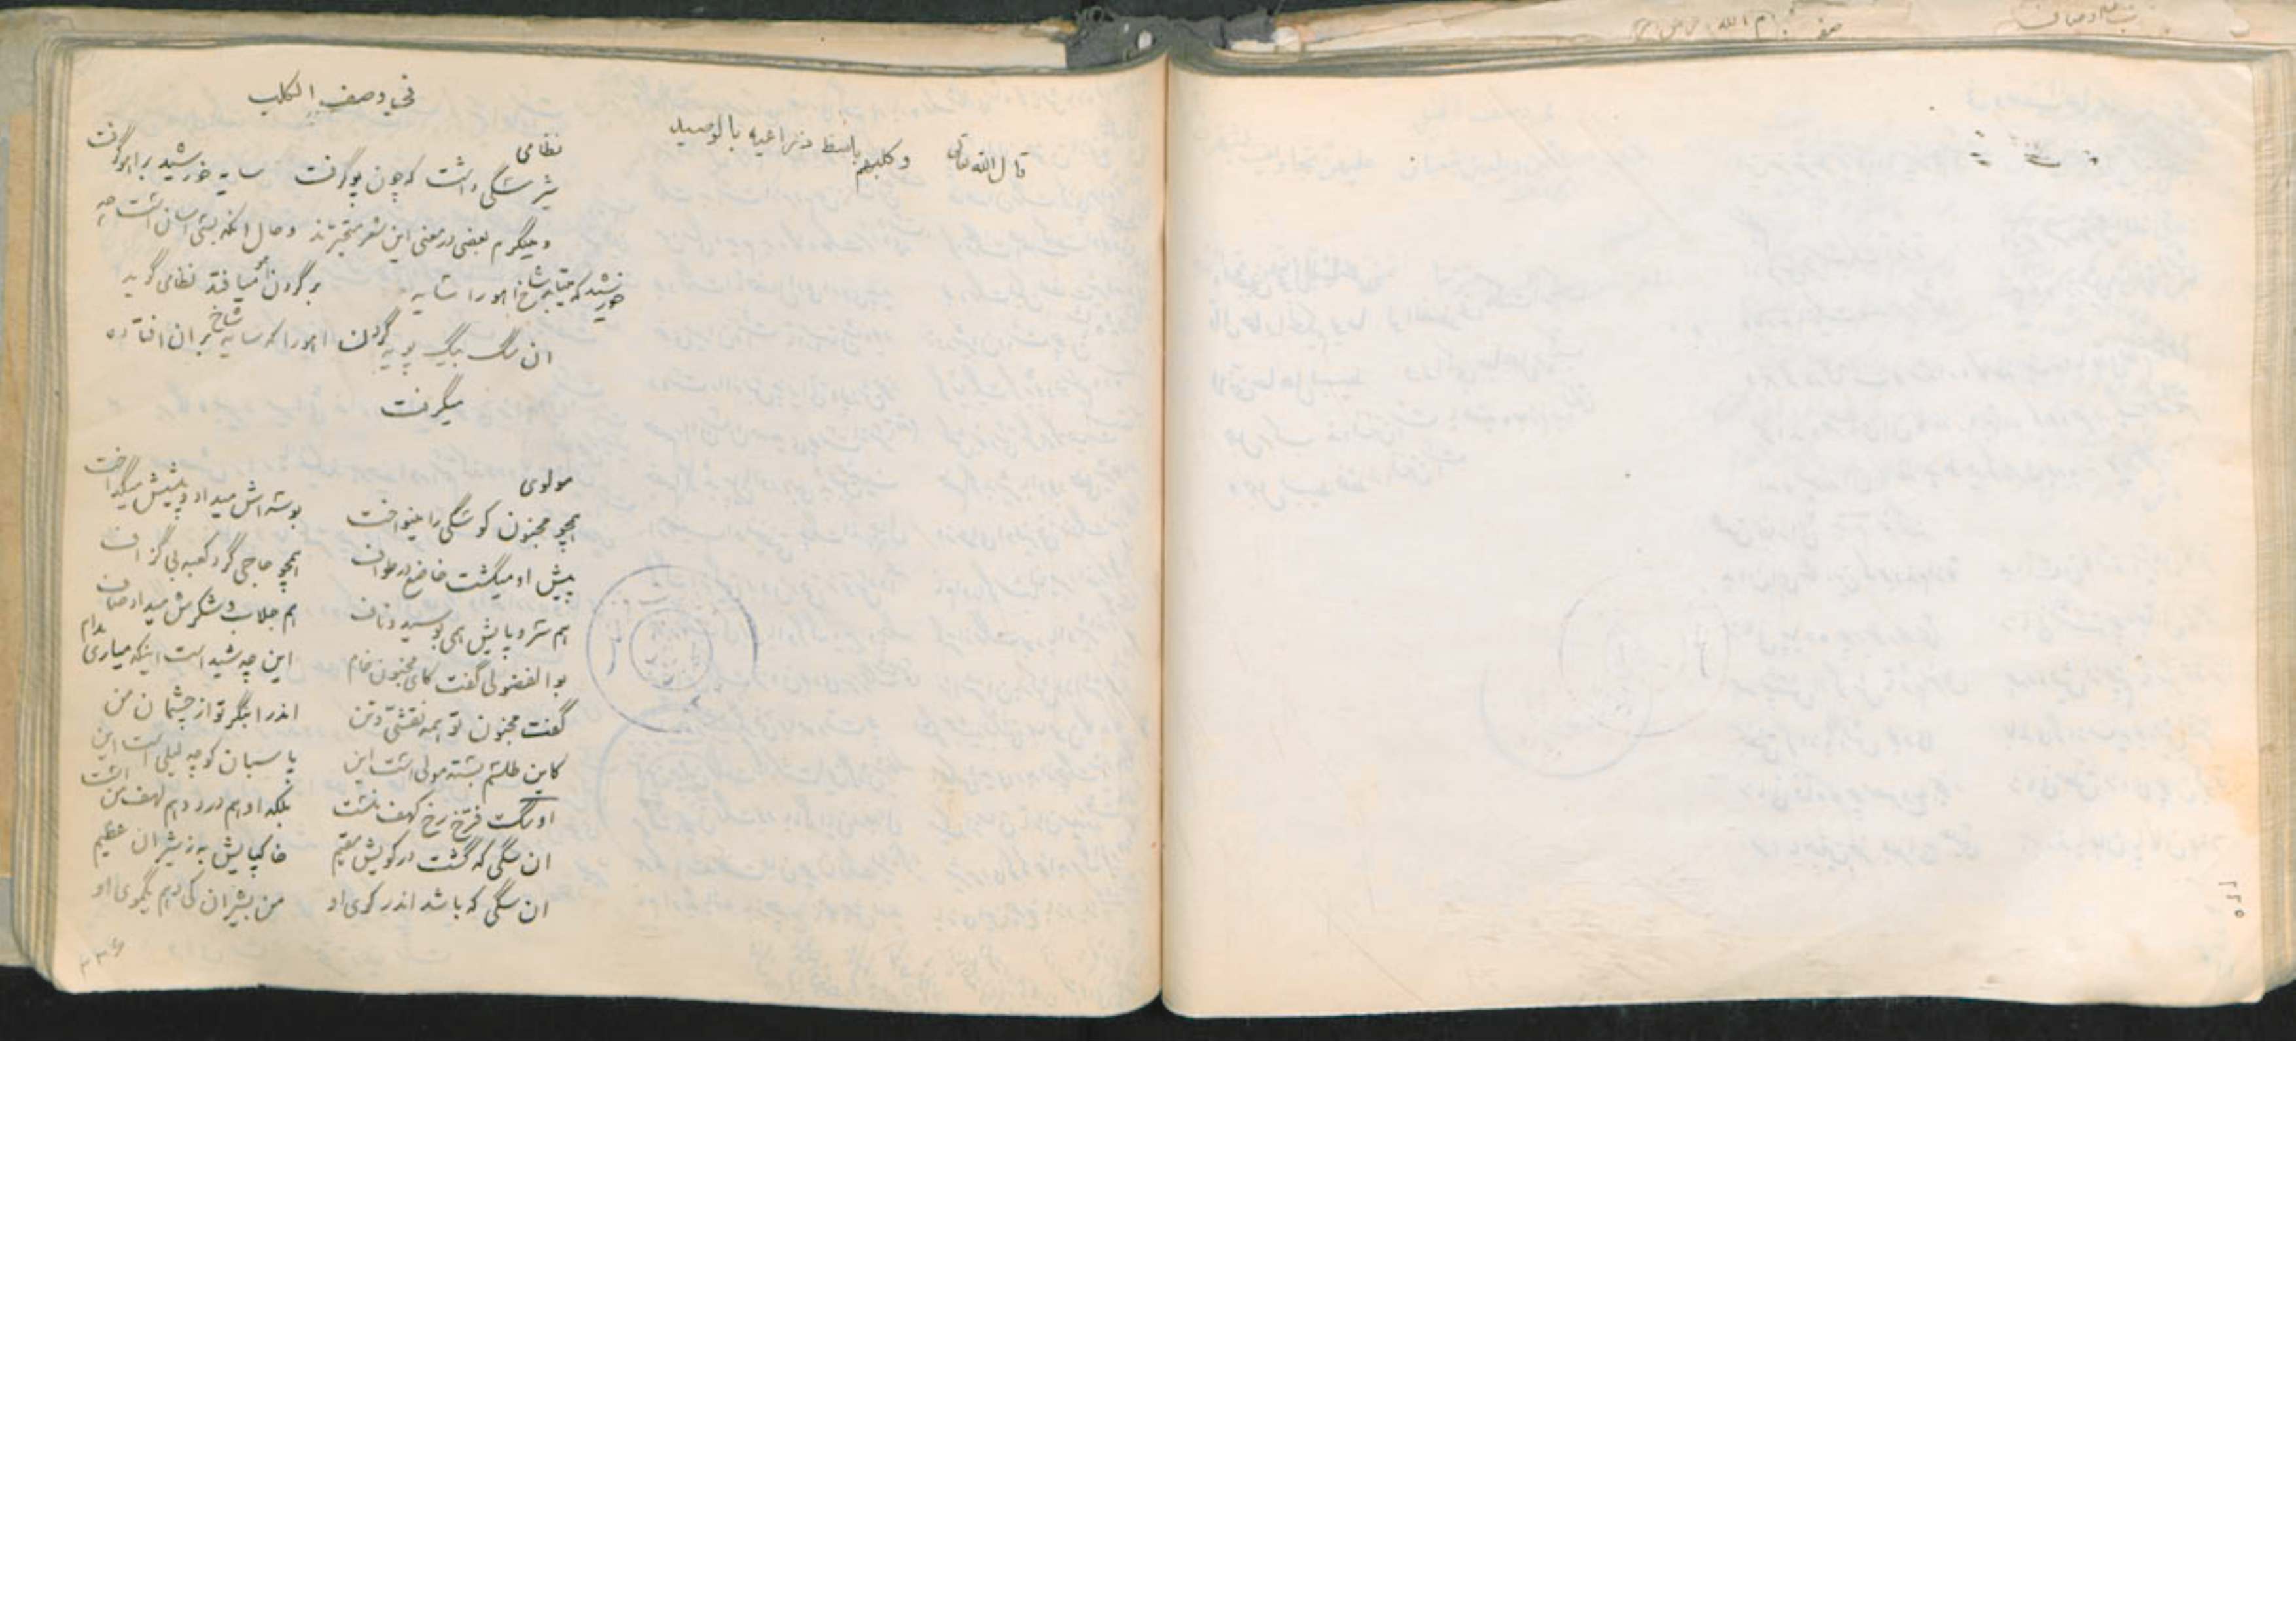 ۲۲۵
فی اوصف الکلب
قال الله تعالی وکلبهم باسط ذراعیه بالوصید
نظامی
شیر سگی داشت که چون پو گرفت سایه خورشید بر اهو گرفت
و میگویم بعضی در معنی این شعر متحیرند و حال انکه بسی اسان است چه
خورشید که میتابد شاخ اهو را سایه بر گردن اهو میافتد نظامی گوید
ان سگ بیک پویه گردن اهورا که سایه شاخ بران افتاده
میگرفت
مولوی
همچو مجنون کو سگی را مینواخت بوسه اش میداد و پیشش میگداخت
پیش او میگشت خاضع در طواف همچو حاجی گرد کعبه بی گزاف
هم سر و پایش همی بوسید و ناف هم جلاب و شکرش میداد صاف
بوالفضولی گفت کای مجنون خام این چه شید است اینکه میاری مدام
گفت مجنون تو همه نقشی و تن اندرا بنگر تو از چشمان من
کاین طلسم بسته مولی است این پاسبان کوچه لیلی است این
او سگ فرخ رخ کهف منست بلکه او هم درد و هم لهف من است
ان سگی که گشت در کویش مقیم خاکپایش به ز شیران عظیم
ان سگی که باشد اندر کوی او من بشیران کی دهم یکموی او
۲۲۶